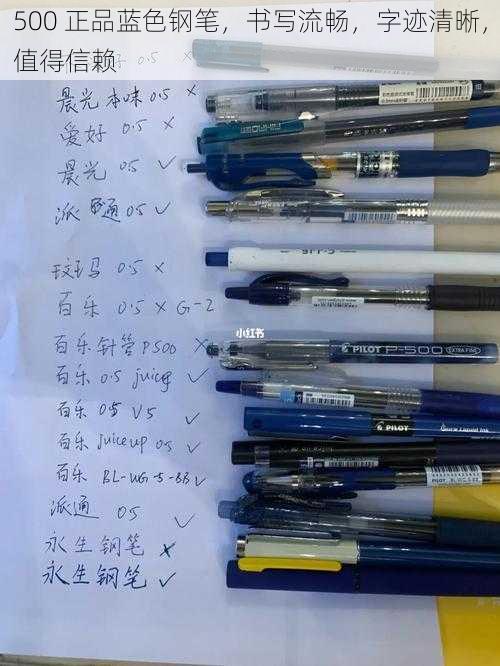 500 正品蓝色钢笔，书写流畅，字迹清晰，
值得信赖
晨光本味 0.5 ×
爱好 0.5 ×
晨光 0.5 ✓
派通 0.5 ✓
玟玛 0.5 ×
百乐 0.5 × G-2
小红书
百乐针管 P500 ×
PILOT P-500 EXTRA FINE
百乐 0.5 juice ✓
百乐 0.5 V5 ✓
PILOT
百乐 juice up 0.5 ✓
百乐 BL-WG-5-BB ✓
派通 0.5 ✓
永生钢笔 ×
永生钢笔 ✓